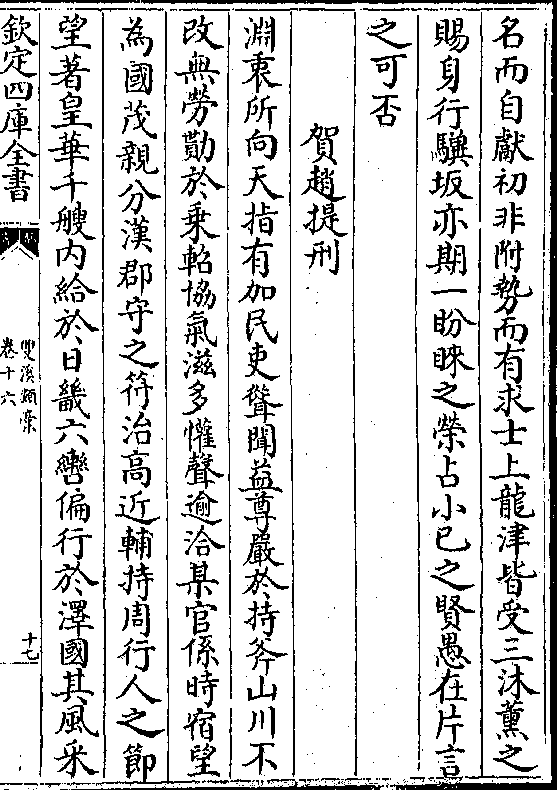 名而自獻初非附勢而有求士上龍津皆受三沐薰之
賜身行驥坂亦期一盼睞之榮占小已之賢愚在片言
之可否
賀趙提刑
淵衷所向天指有加民吏聳聞益尊嚴於持斧山川不
改無勞勩於乗軺協氣滋多懽聲逾洽某官係時宿望
為國茂親分漢郡守之符治高近輔持周行人之節
望著皇華千艘内給於日畿六轡偏行於澤國其風采
欽定四庫全書
雙溪類槀
卷十六
十七